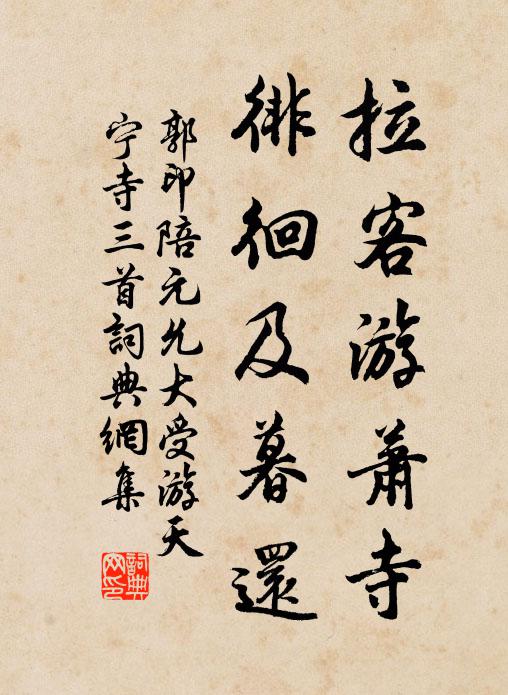 拉客游蕭寺
徘徊及暮還
郭印陪元允大受游天
宁寺三首詞典網集
詞典
网印